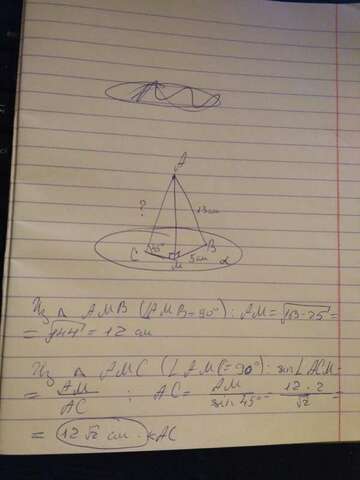 A
?
13 см
45°
C
B
5 см
M
α
Из △ AMB (∠AMB=90°): AM=√169-25 =
= √144 = 12 см
Из △ AMC (∠AMC=90°): sin∠ACM=
= AM/AC ; AC= AM/sin 45° = 12·2/√2 =
= 12√2 см - AC